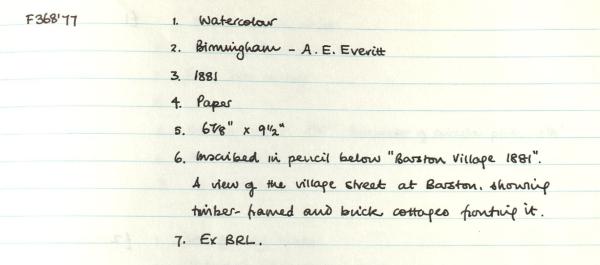 F368'77
1. Watercolour
2. Birmingham - A. E. Everitt
3. 1881
4. Paper
5. 6⅞" x 9½"
6. Inscribed in pencil below "Barston Village 1881".
A view of the village street at Barston, showing
timber-framed and brick cottages fronting it.
7. Ex BRL.